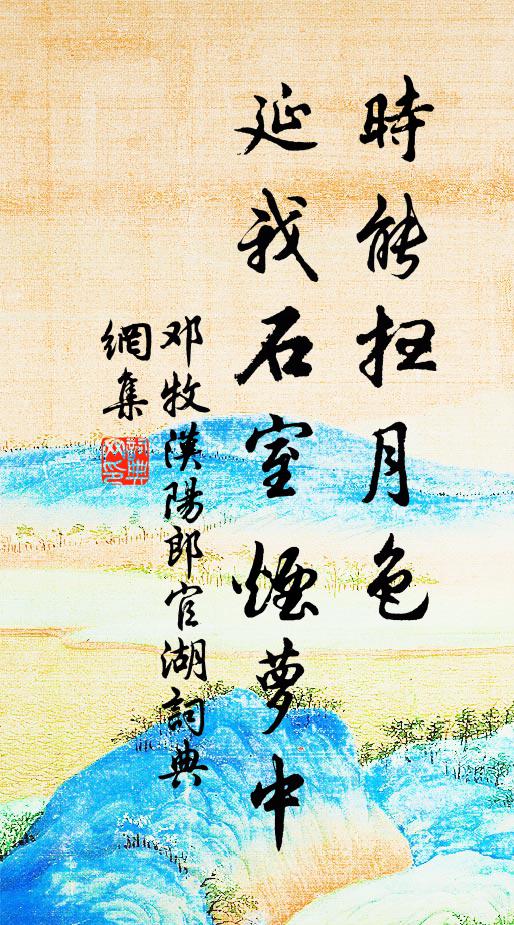 時能扫月色
延我石室煙萝中
邓牧漢陽郎官湖詞典
網集